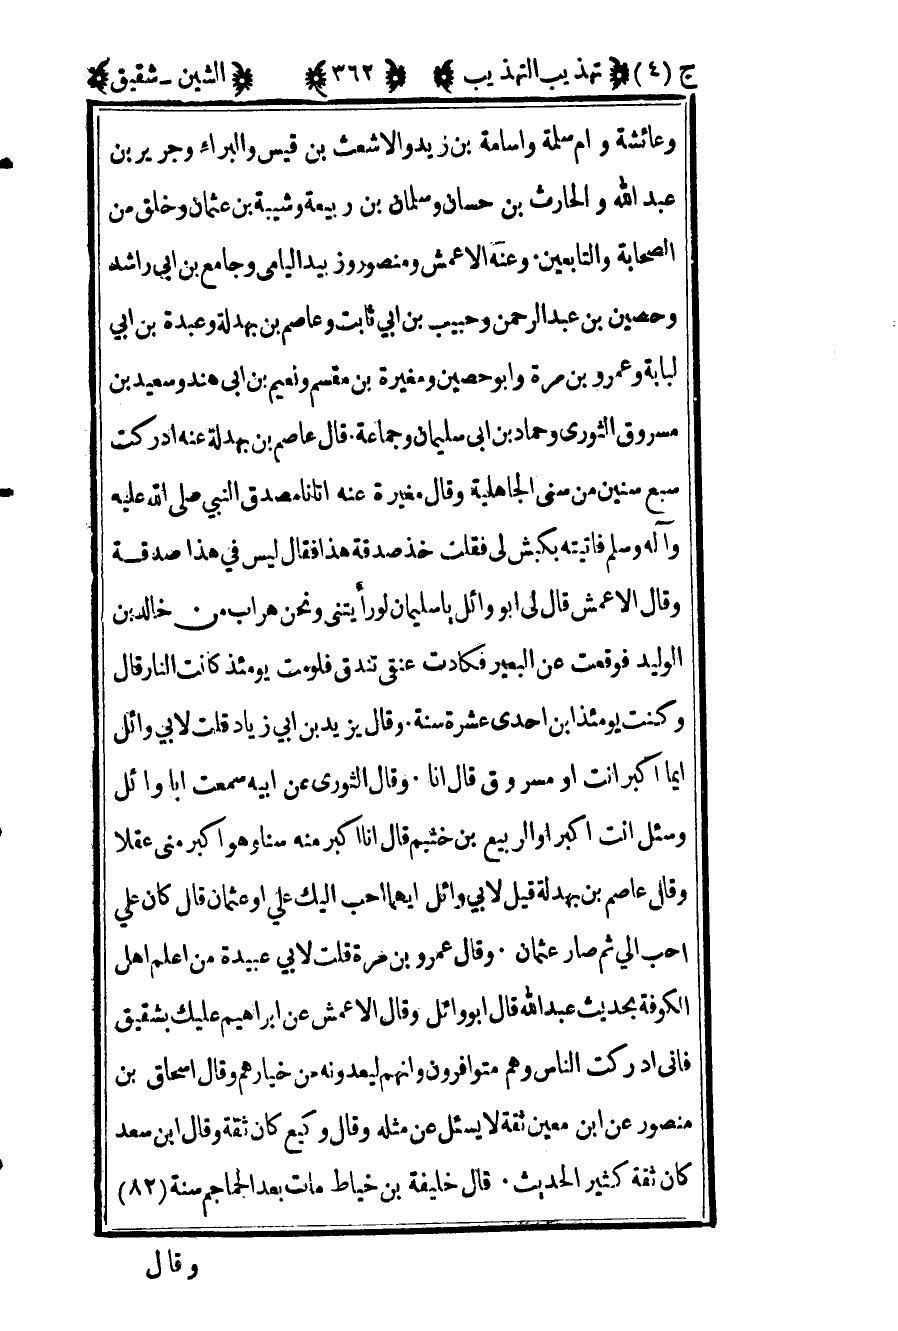 ج (٤) تهذيب التهذيب ٣٦٢ الشين - شقيق
وعائشة و ام سلمة واسامة بن زيد والاشعث بن قيس والبراء وجرير بن
عبد الله و الحارث بن حسان وسلمان بن ربيعة وشيبة بن عثمان وخلق من
الصحابة والتابعين. وعنه الاعمش ومنصور وزبيد اليامى وجامع بن ابي راشد
وحصين بن عبد الرحمن وحبيب بن ابي ثابت وعاصم بن بهدلة وعبدة بن ابي
لبابة وعمرو بن مرة وابو حصين ومغيرة بن مقسم ونعيم بن ابى هند وسعيد بن
مسروق الثورى وحماد بن ابى سليمان وجماعة. قال عاصم بن بهدلة عنه ادركت
سبع سنين من سنى الجاهلية وقال مغيرة عنه اتانا مصدق النبي صلى الله عليه
وآله وسلم فاتيته بكبش لى فقلت خذ صدقة هذا فقال ليس في هذا صدقة
وقال الاعمش قال لى ابو وائل ياسليمان لو رأيتنى ونحن هراب من خالد بن
الوليد فوقعت عن البعير فكادت عنقى تندق فلو مت يومئذ كانت النار قال
وكنت يومئذ ابن احدى عشرة سنة. وقال يزيد بن ابي زياد قلت لابي وائل
ايما اكبر انت او مسروق قال انا. وقال الثورى عن ابيه سمعت ابا وائل
وسئل انت اكبر او الربيع بن خثيم قال انا اكبر منه سنا وهو اكبر منى عقلا
وقال عاصم بن بهدلة قيل لابي وائل ايهما احب اليك علي او عثمان قال كان علي
احب الي ثم صار عثمان. وقال عمرو بن مرة قلت لابي عبيدة من اعلم اهل
الكوفة بحديث عبد الله قال ابو وائل وقال الاعمش عن ابراهيم عليك بشقيق
فانى ادركت الناس وهم متوافرون وانهم ليعدونه من خيارهم وقال اسحاق بن
منصور عن ابن معين ثقة لا يسئل عن مثله وقال وكيع كان ثقة وقال ابن سعد
كان ثقة كثير الحديث. قال خليفة بن خياط مات بعد الجماجم سنة (٨٢)
وقال